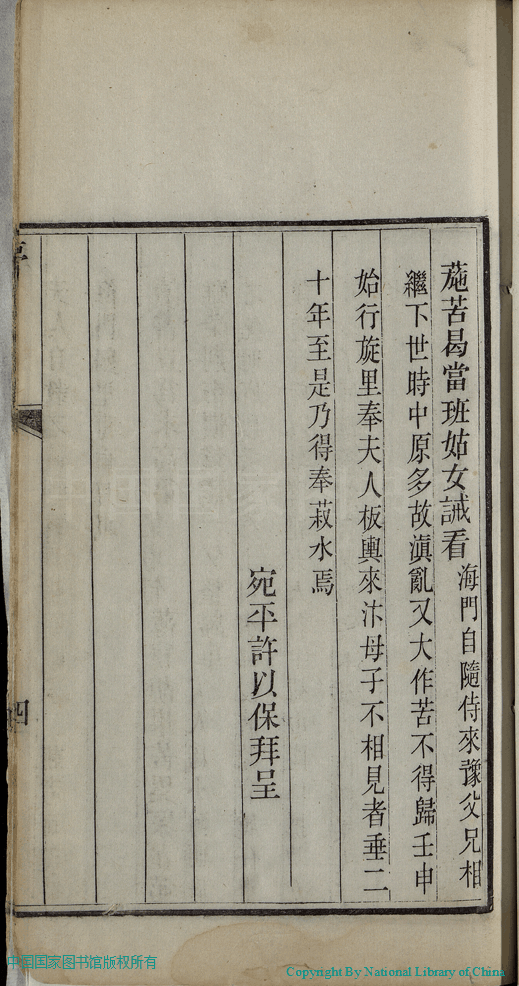 葹苦曷當班姑女誡看海門自隨侍來豫父兄相
繼下世時中原多故滇亂又大作苦不得歸壬申
始行旋里奉夫人板輿來汴母子不相見者垂二
十年至是乃得奉菽水焉
宛平許以保拜呈
四
中国国家图书馆版权所有
Copyright By National Library of China